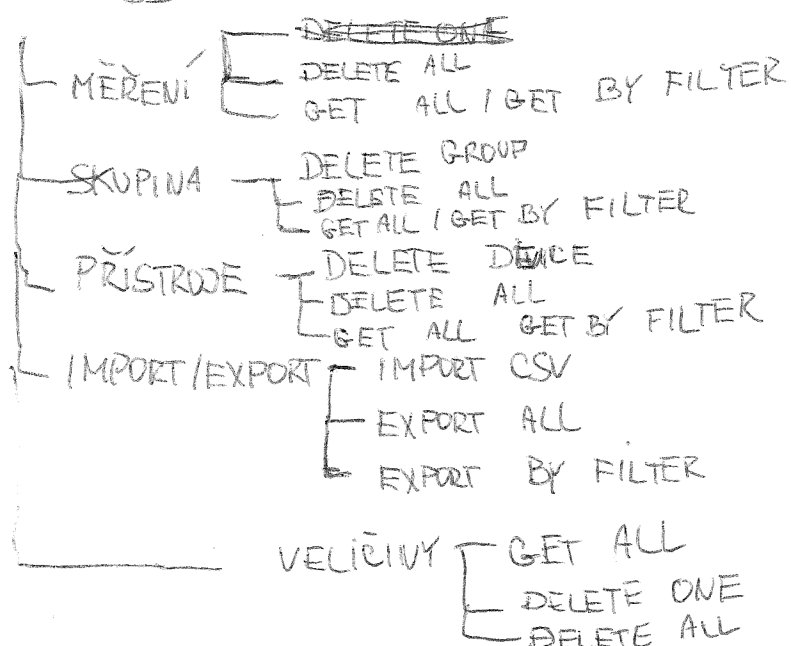 DELETE ONE
MĚŘENÍ
DELETE ALL
GET ALL / GET BY FILTER
SKUPINA
DELETE GROUP
DELETE ALL
GET ALL / GET BY FILTER
PŘÍSTROJE
DELETE DEVICE
DELETE ALL
GET ALL GET BY FILTER
IMPORT/EXPORT
IMPORT CSV
EXPORT ALL
EXPORT BY FILTER
VELIČINY
GET ALL
DELETE ONE
DELETE ALL